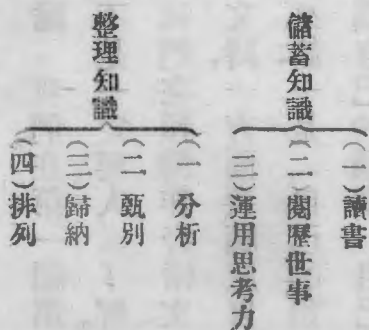 儲蓄知識
(一)讀書
(二)閱歷世事
(三)運用思考力
整理知識
(一)分析
(二)甄別
(三)歸納
(四)排列